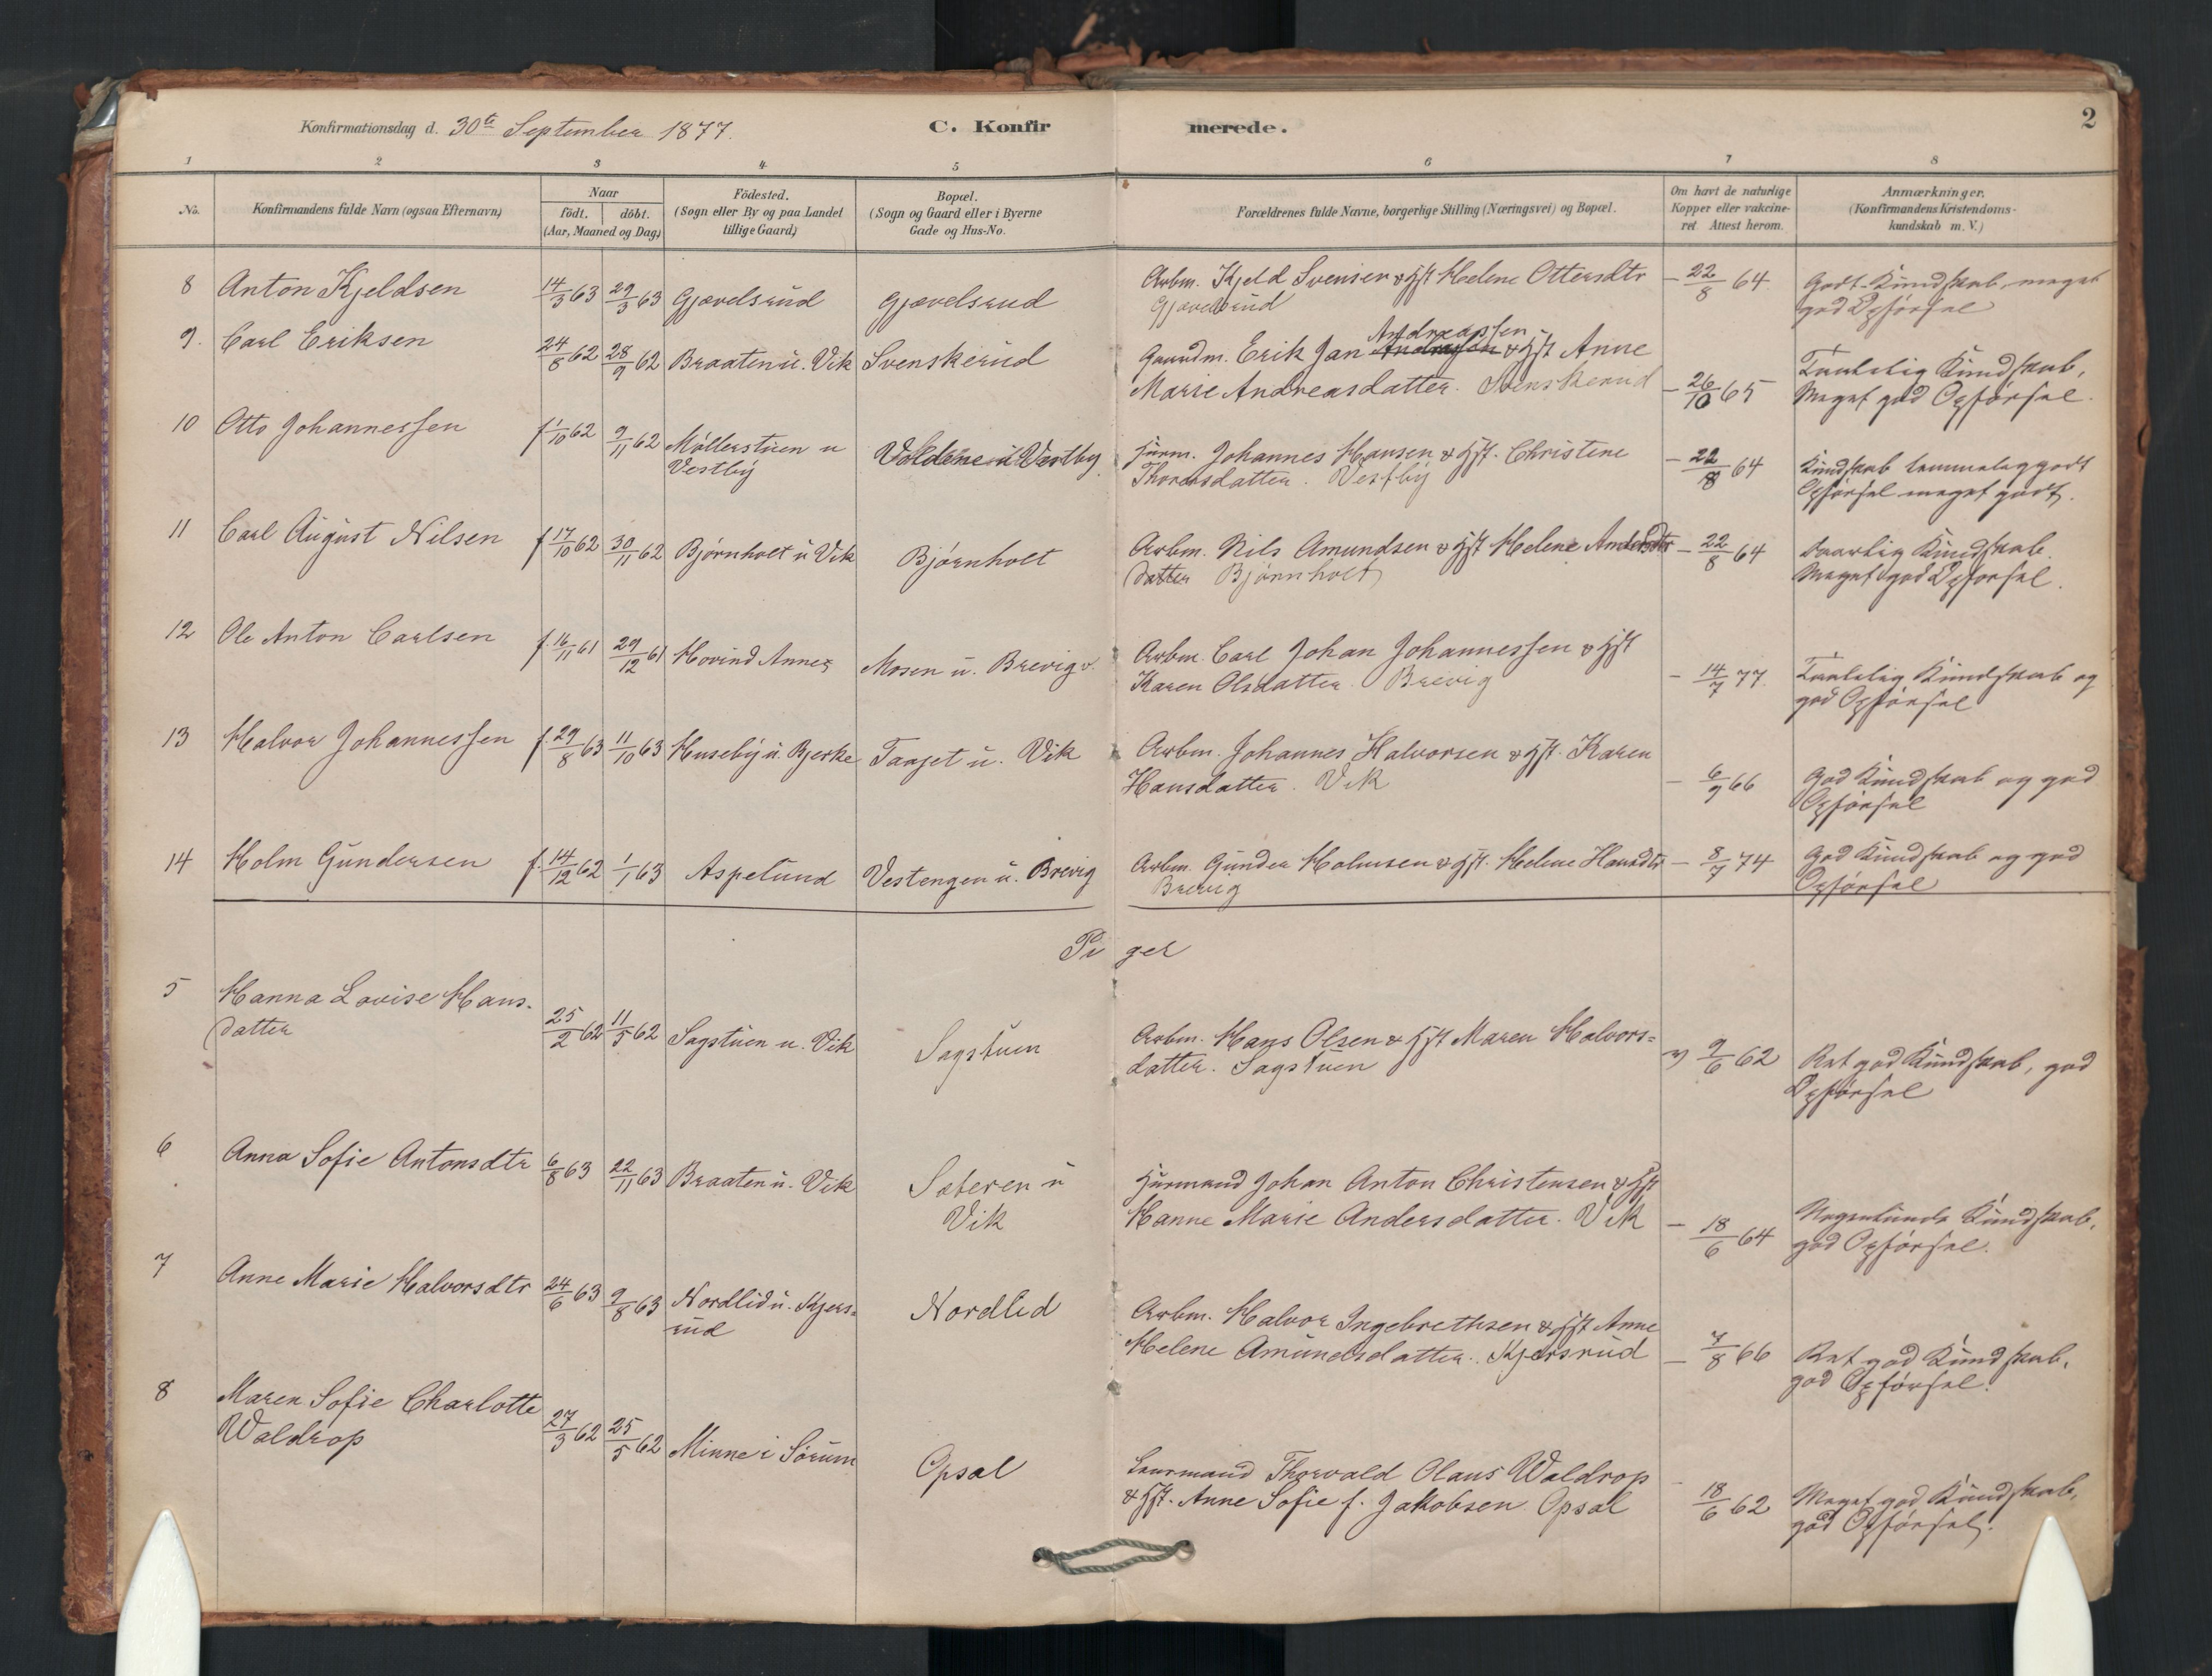 Konfirmationsdag d. 30te September 1877.
C. Konfirmerede.
2
1 2 3 4 5 6 7 8
No.
Konfirmandens fulde Navn (ogsaa Efternavn)
Naar
födt. döbt.
(Aar, Maaned og Dag)
Födested.
(Sogn eller By og paa Landet
tillige Gaard)
Bopæl.
(Sogn og Gaard eller i Byerne
Gade og Hus-No.
Forældrenes fulde Navne, borgerlige Stilling (Næringsvei) og Bopæl.
Om havt de naturlige
Kopper eller vakcine-
ret Attest herom.
Anmærkninger.
(Konfirmandens Kristendoms-
kundskab m. V.)
8 Anton Kjeldsen 14/3 63 29/3 63 Gjævelsrud Gjævelsrud Arbm. Kjeld Svensen & Hst Helene Ottersdtr – 22/8 64 Godt Kundskab, meget
Gjævelsrud god Opførsel
9. Carl Eriksen 24/8 62 28/9 62 Braaten u. Vik Svenskerud Gaardm. Erik Jan Andreassen & Hst Anne
Marie Andreasdatter. Svenskerud – 26/10 65 Taalelig Kundskab,
Meget god Opførsel.
10 Otto Johannessen f 1/10 62 9/11 62 Møllerstuen u
Vestby Voldene u Vestby Husm. Johannes Hansen & Hst. Christine – 22/8 64 Kundskab temmelig godt
Thorersdatter. Vestby Opførsel meget godt.
11 Carl August Nilsen f 17/10 62 30/11 62 Bjørnholt u Vik Bjørnholt Arbm. Nils Amundsen & Hst Helene Andersdtr – 22/8 64 daarlig Kundskab.
datter Bjørnholt Meget god Opførsel.
12 Ole Anton Carlsen f. 16/11 61 29/12 61 Hovind Annex Mosen u. Brevig Arbm. Carl Johan Johannessen & Hst
Karen Olsdatter. Brevig – 14/7 77. Taalelig Kundskab og
god Opførsel
13 Halvor Johannessen f. 29/8 63 11/10 63 Huseby u. Bjerke Taajet u. Vik Arbm. Johannes Halvorsen & Hst. Karen
Hansdatter. Vik – 6/9 66 God Kundskab og god
Opførsel
14 Holm Gundersen f. 14/12 62 1/1 63 Aspelund Vestengen u. Brevig Arbm. Gunder Holmsen & Hst. Helene Hansdtr – 8/7 74 God Kundskab og god
Brevig Opførsel
Piger
5 Hanna Lovise Hans-
datter 25/2 62 11/5 62 Sagstuen u. Vik Sagstuen Arbm. Hans Olsen & Hst Maren Halvors=
datter. Sagstuen 9/6 62 Ret god Kundskab, god
Opførsel
6 Anna Sofie Antonsdtr 6/8 63 22/11 63 Braaten u. Vik Sæteren u
Vik Husmand Johan Anton Christensen & Hst
Hanne Marie Andersdatter. Vik – 18/6 64 Nogenlunde Kundskab,
god Opførsel.
7 Anne Marie Halvorsdtr 24/6 63 9/8 63 Nordlid u. Kjers=
rud Nordlid Arbm. Halvor Ingebrethsen & Hst Anne
Helene Amundsdatter. Kjersrud – 7/8 66 Ret god Kundskab,
god Opførsel.
8 Maren Sofie Charlotte
Waldrop 27/3 62 25/5 62 Minne i Sørum Opsal Thorvald Olaus Waldrop
& Hst. Anne Sofie f. Jakobsen Opsal 18/6 62 Meget god Kundskab,
god Opførsel.